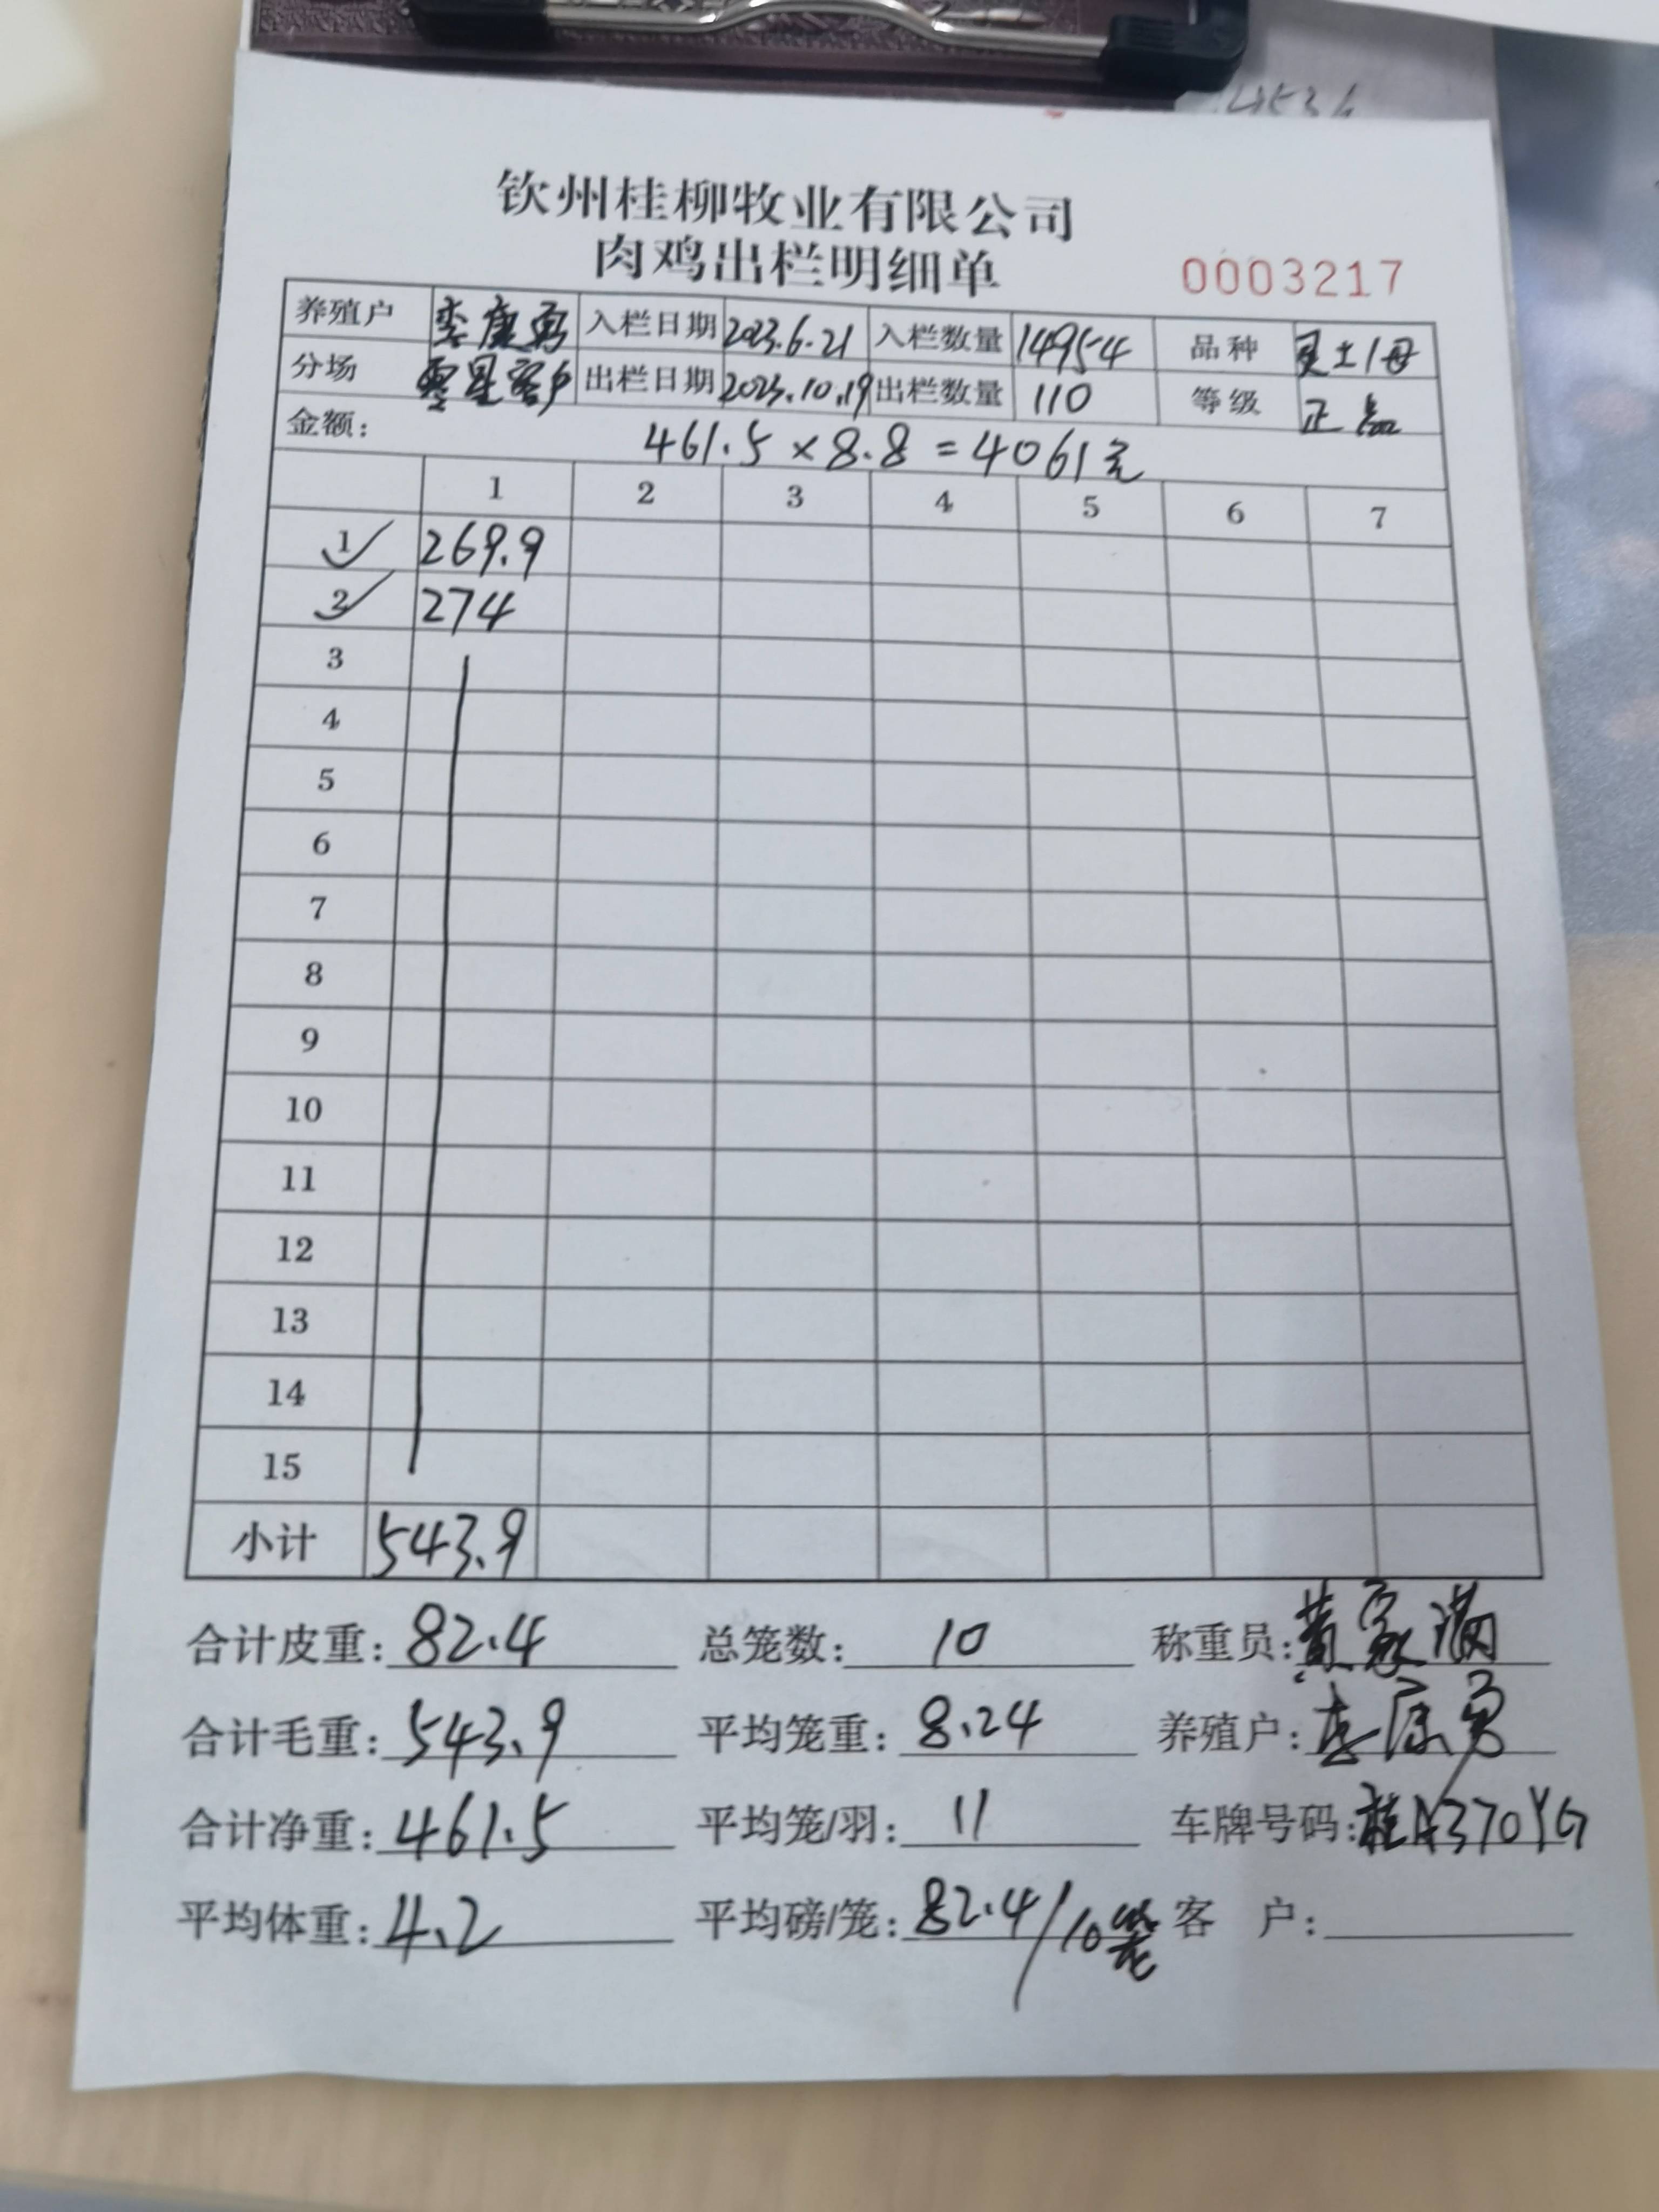 4536
钦州桂柳牧业有限公司
肉鸡出栏明细单
0003217
养殖户 李康勇 入栏日期 2023.6.21 入栏数量 14954 品种 灵土1母
分场 零星客户 出栏日期 2023.10.19 出栏数量 110 等级 正品
金额: 461.5×8.8=4061元
1 2 3 4 5 6 7
1 269.9
2 274
3
4
5
6
7
8
9
10
11
12
13
14
15
小计 543.9
合计皮重: 82.4 总笼数: 10 称重员: 黄家满
合计毛重: 543.9 平均笼重: 8.24 养殖户: 李康勇
合计净重: 461.5 平均笼/羽: 11 车牌号码: 桂A370YG
平均体重: 4.2 平均磅/笼: 82.4/10笼 客 户: